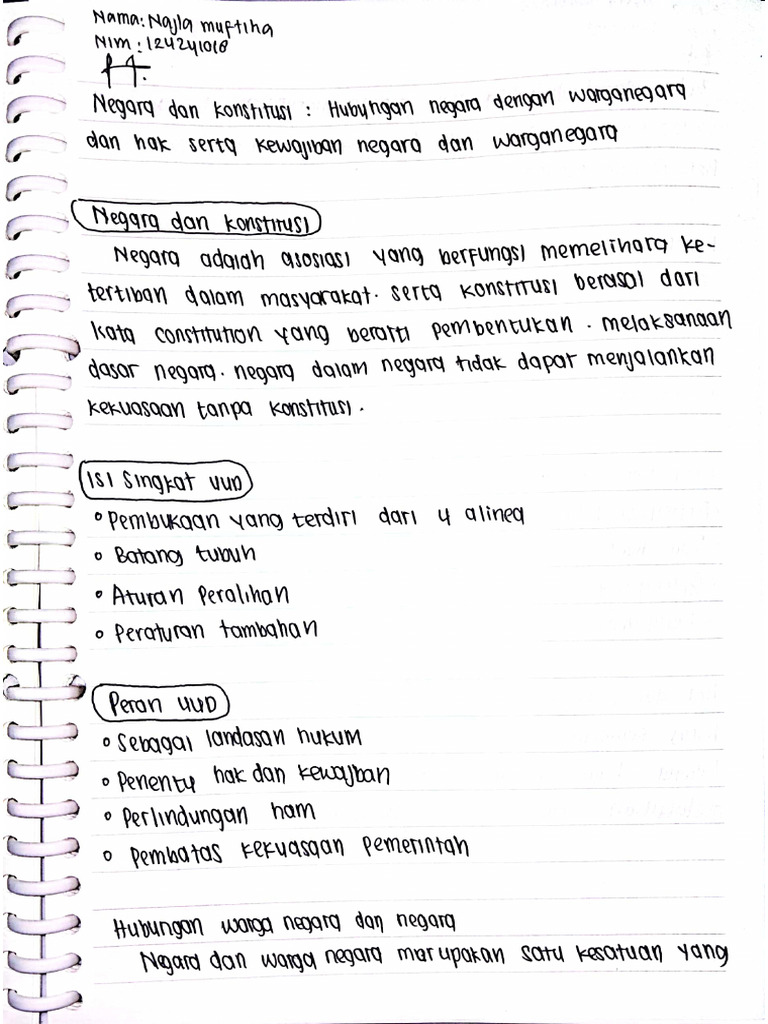 Nama: Najla muftiha
Nim: 124241018
Negara dan konstitusi : Hubungan negara dengan warganegara
dan hak serta kewajiban negara dan warganegara
Negara dan konstitusi
Negara adalah asosiasi yang berfungsi memelihara ke-
tertiban dalam masyarakat. serta konstitusi berasal dari
kata constitution yang berarti pembentukan. melaksanaan
dasar negara. negara dalam negara tidak dapat menjalankan
kekuasaan tanpa konstitusi.
Isi singkat UUD
° Pembukaan yang terdiri dari 4 alinea
° Batang tubuh
° Aturan Peralihan
° Peraturan tambahan
Peran UUD
° Sebagai landasan hukum
° Penentu hak dan kewajban
° Perlindungan ham
° Pembatas kekuasaan pemerintah
Hubungan warga negara dan negara
Negara dan warga negara merupakan satu kesatuan yang